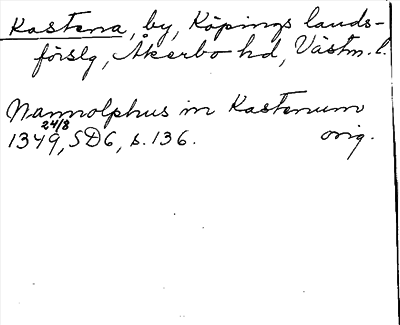 Kastena, by, Köpings lands-
förslg, Åkerbo hd, Västm. l.
Nannolphus in Kastenum
24/8
1349, SD6, s. 136. orig.